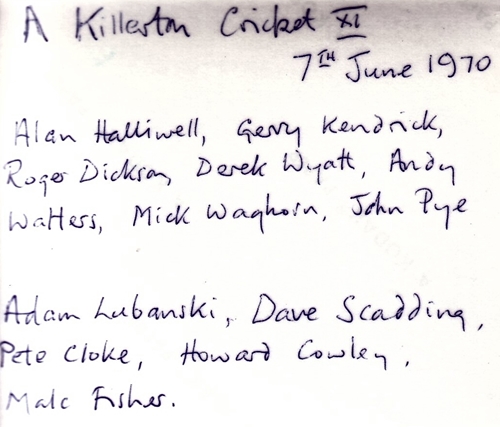 A Killerton Cricket XI
7TH June 1970
Alan Halliwell, Gerry Kendrick,
Roger Dickson, Derek Wyatt, Andy
Watters, Mick Waghorn, John Pye
Adam Lubanski, Dave Scadding,
Pete Cloke, Howard Cowley,
Malc Fisher.